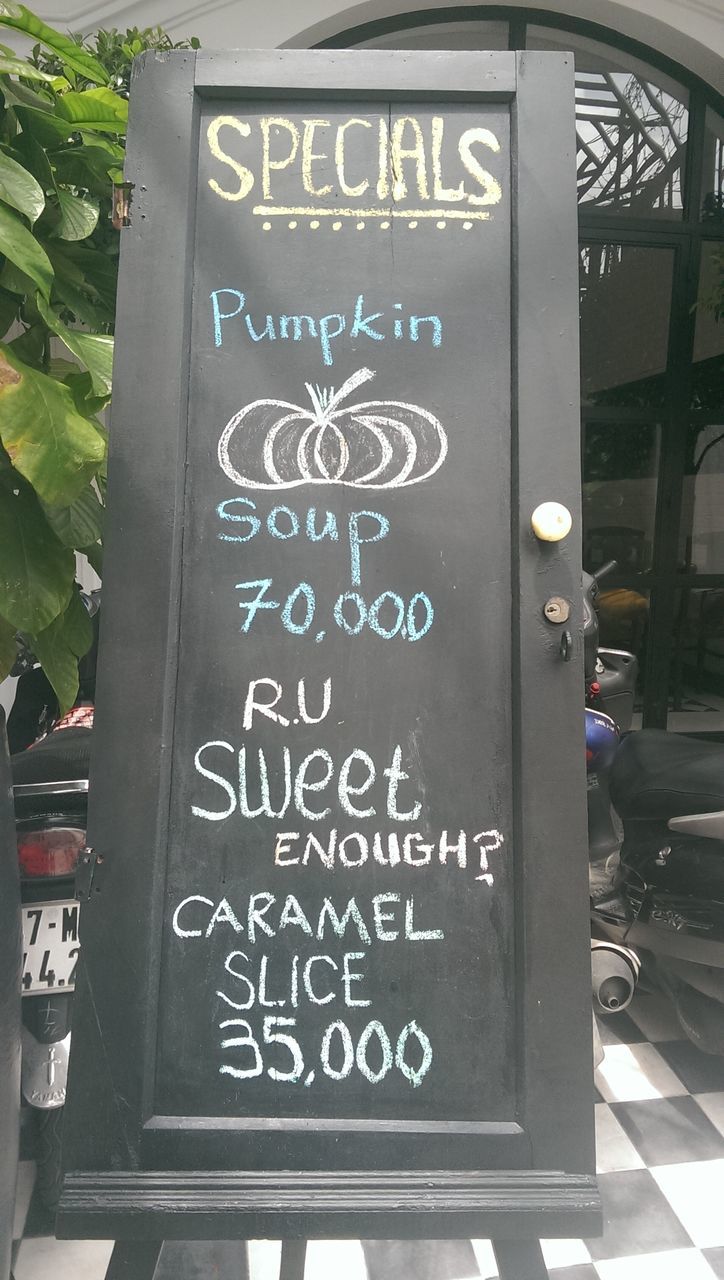 SPECIALS
Pumpkin
Soup
70,000
R.U
Sweet
ENOUGH?
CARAMEL
SLICE
35,000
7-M
44.2